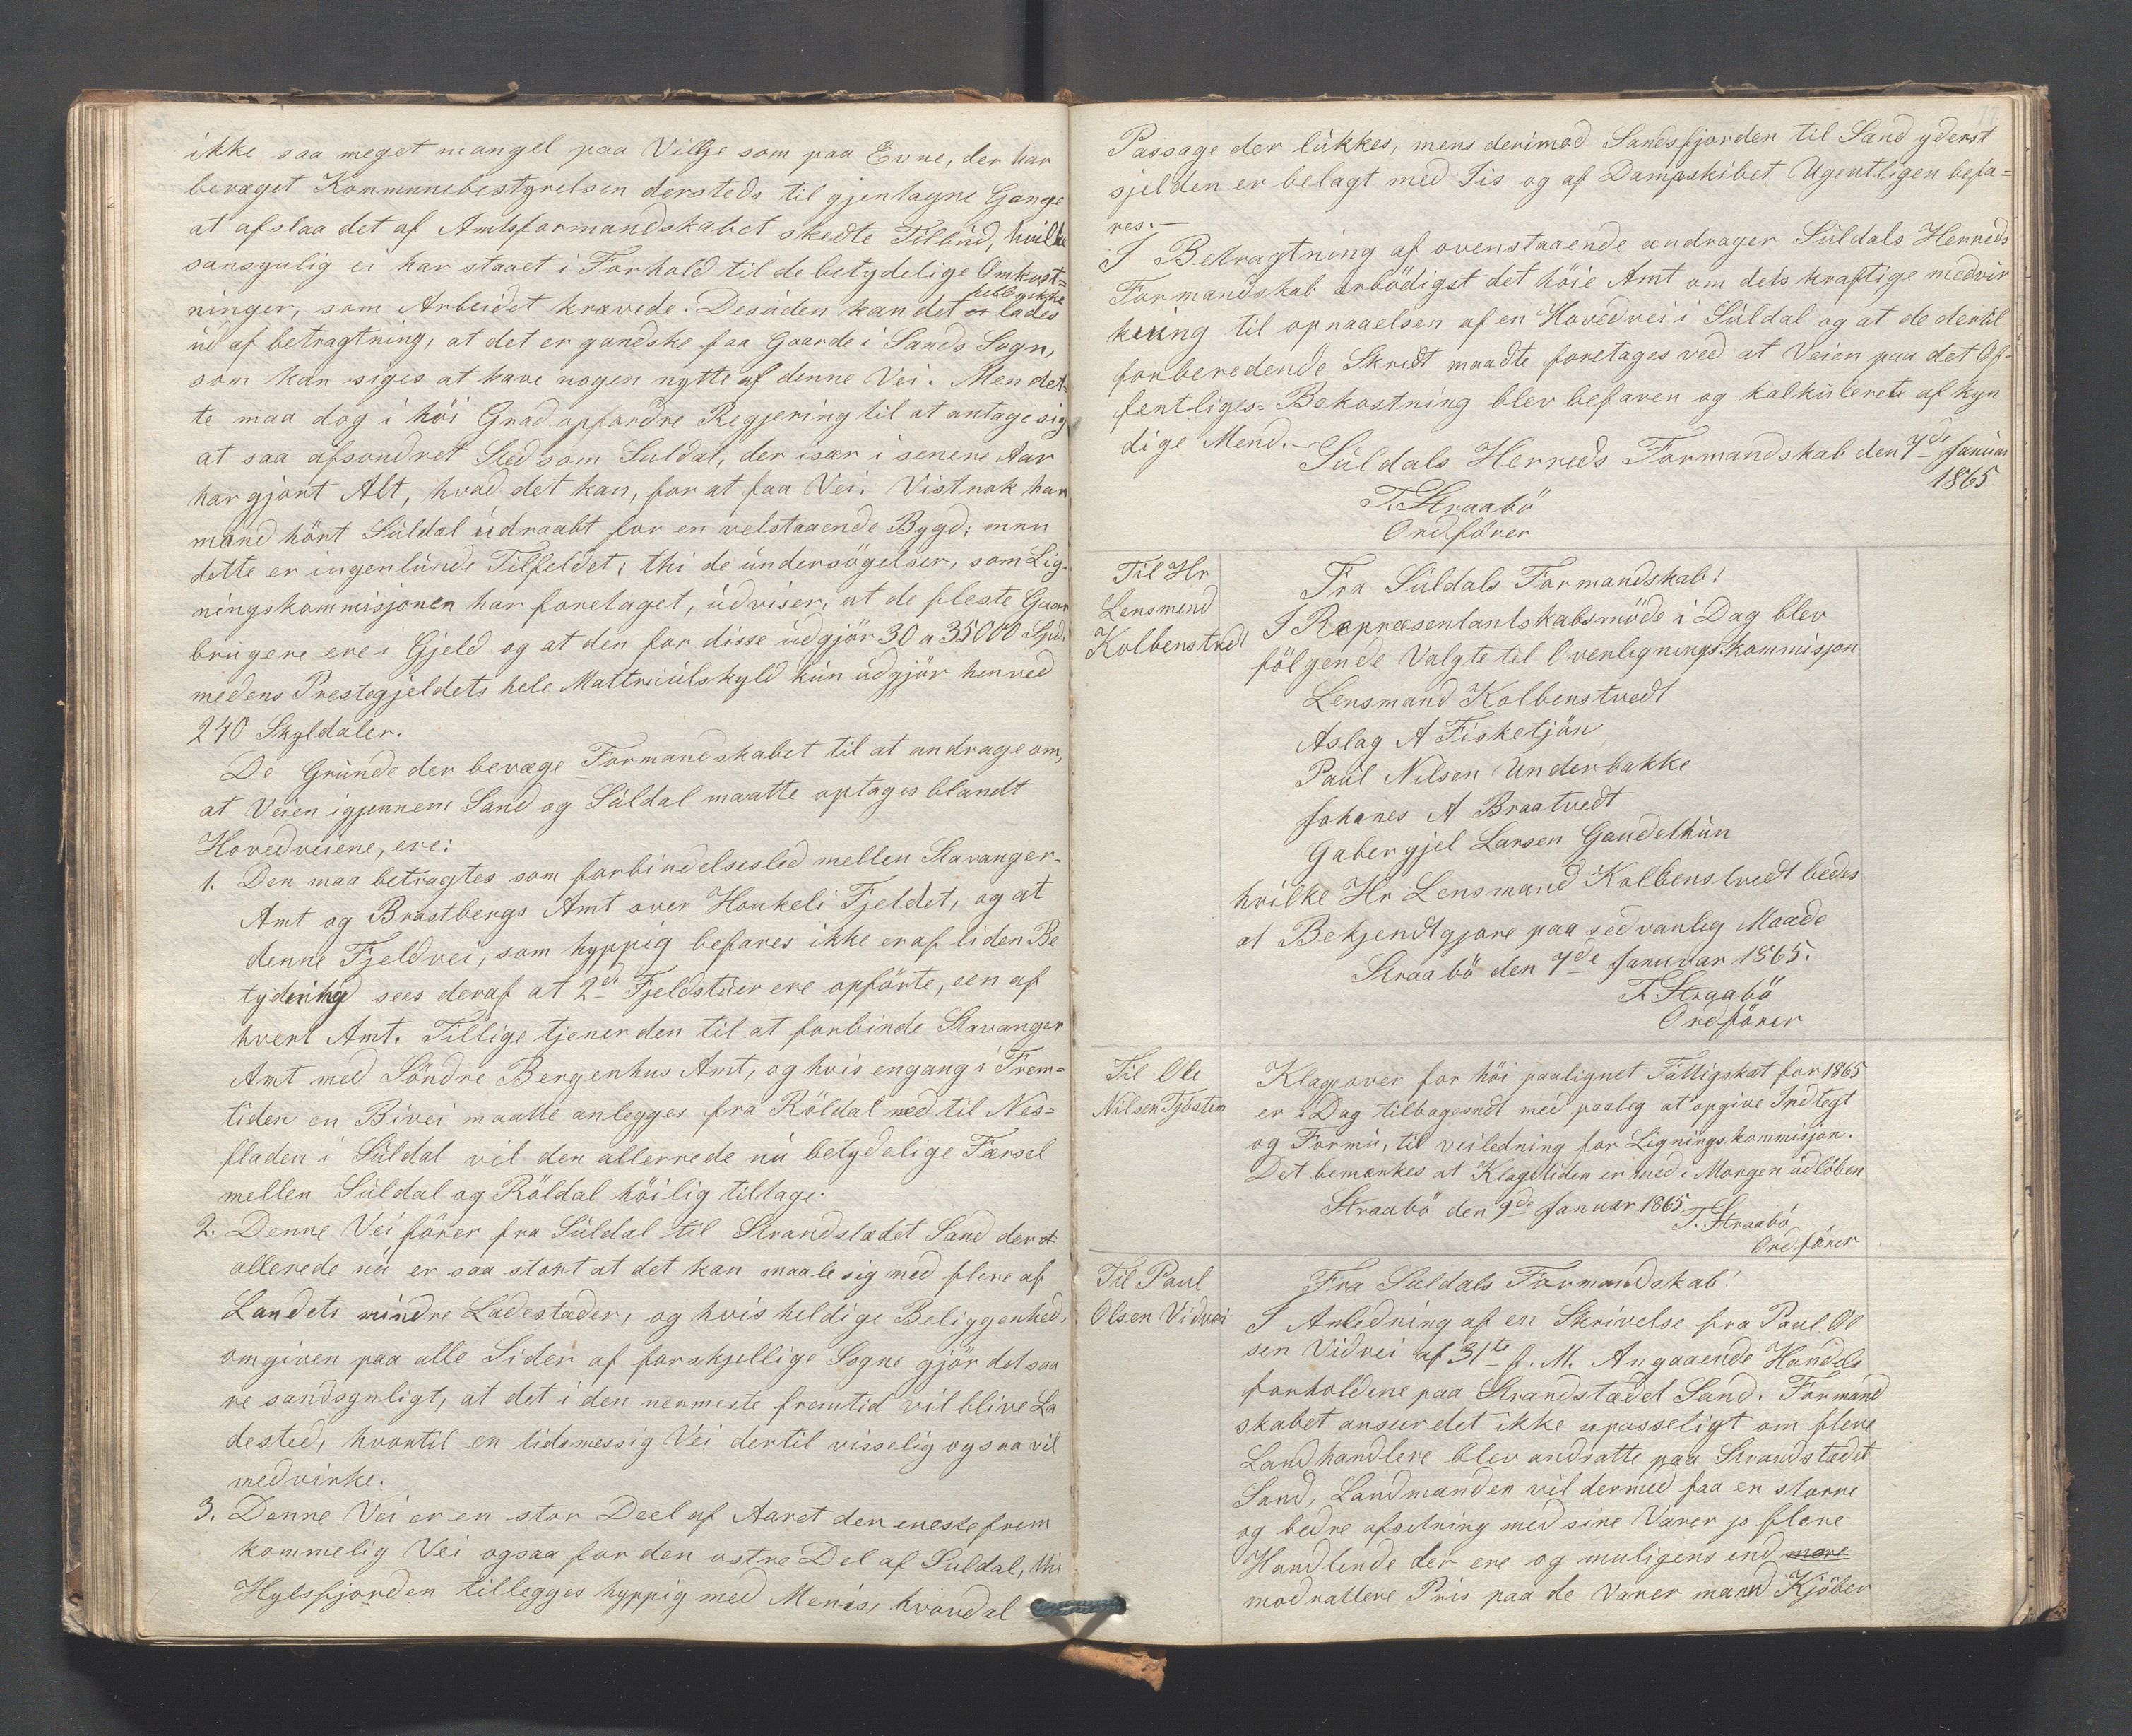 ikke saa meget mangel paa Villje som paa Evne, der har
bevæget Kommunebestyrelsen dersteds til gjentagne Gange
at afslaa det af Amtsformandskabet skedte Tilbud, hvilke
sansynlig ei har staaet i Forhold til de betydelige Omkost=
ninger, som Arbeidet krævede. Desuden kan det heller ikke lades
ud af betragtning, at det er gandske faa Gaarde i Sands Sogn,
som kan siges at have nogen nytte af denne Vei. Men det-
te maa dog i höi Grad opfordre Regjering til at antage sig
at saa afsondret Sted som Suldal, der især i senere Aar
har gjort Alt, hvad det kan, for at faa Vei. Vistnok har
mand hört Suldal udraabt for en velstaaende Bygd; men
dette er ingenlunde Tilfeldet; thi de undersögelser, som Lig-
ningskommisjonen har foretaget, udviser, at de fleste Gaar
brugere ere i Gjeld og at den for disse udgjör 30 a 35000 Spd.
medens Prestegjeldets hele Mattriulskyld kun udgjör henved
240 Skyldaler.
De Grunde der bevæge Formandskabet til at andrage om,
at Veien igjennem Sand og Suldal maatte optages blandt
Hovedveiene, ere:
1. Den maa betragtes som forbindelsesled mellen Stavanger-
Amt og Brastbergs Amt over Houkeli Fjeldet, og at
denne Fjeldvei, som hyppig befares ikke er af liden Be
tydenhed sees deraf at 2de Fjeldstuer ere opförte, een af
hvert Amt. Tillige tjener den til at forbinde Stavanger
Amt med Söndre Bergenhus Amt, og hvis engang i Frem=
tiden en Bivei maatte anlegges fra Röldal ned til Nes=
fladen i Suldal vil den allerrede nu betydelige Færsel
mellen Suldal og Röldal höilig tiltage.
2. Denne Vei förer fra Suldal til Strandstædet Sand der
allerede nu er saa stort at det kan maale sig med flere af
Landets mindre Ladestæder, og hvis heldige Beliggenhed,
omgiven paa alle Sider af forskjellige Sogne gjör det saa
re sandsynligt, at det i den nermeste fremtid vil blive La
dested, hvortil en tidsmessig Vei dertil visselig ogsaa vil
medvirke.
3. Denne Vei er en stor Deel af Aaret den eneste frem
kommelig Vei ogsaa for den østre Del af Suldal, thi
Hylsfjorden tillegges hyppig med Menis, hvorved al
Passage der lukkes, mens derimod Sandsfjorden til Sand yderst
sjelden er belagt med Iis og af Dampskibet Ugentligen befa=
res.-
I Betragtning af ovenstaaende andrager Suldals Herreds
Formandskab ærbödigst det höie Amt om dets kraftige medvir
kning til opnaaelsen af en Hovedvei i Suldal og at de dertil
forberedende Skridt maadte foretages ved at Veien paa det Of-
fentliges= Bekostning blev befaren og kalkulerete af kyn
dige Mend.-
Suldals Herreds Formandskab den 7de Januar
1865
T. Straabö
Ordförer
Til Hr
Lensmend
Kolbenstvedt
Fra Suldals Formandskab!
I Repræsentantskabsmöde i Dag blev
fölgende Valgte til Overlignings kommisjon
Lensmand Kolbenstvedt
Aslag A Fisketjön
Paul Nilsen Underbakke
Johanes A Braatvedt
Gabergjel Larsen Gaudelhun
hvilke Hr Lensmand Kolbenstvedt bedes
at Bekjendtgjore paa sedvanleg Maade
Straabö den 7de Januar 1865.
T. Straabö
Ordförer
Til Ole
Nilsen
Klage over for höi paalignet Fattigskat for 1865
er i Dag tilbagesendt med paaleg at opgive Indtegt
og Formu, til veiledning for Ligningskommisjon.
Det bemærkes at Klagetiden er med i Morgen udlöben
Straabö den 9de Januar 1865
T. Straabö
Ordförer
Til Paul
Olsen Vidvei
Fra Suldals Formandskab!
I Anledning af en Skrivelse fra Paul Ol
sen Vidvei af 31te f. M. Angaaende Handels
forholdene paa Strandstædet Sand. Formand
skabet anseer det ikke upasseligt om flere
Landhandlere blev andsatte paa Strandstædet
Sand, Landmanden vil dermed faa en storre
og bedre afsetning med sine Varer jo flere
Handlende der ere og muligens end mere
modrattere Pris paa de Varer mand Kjöber